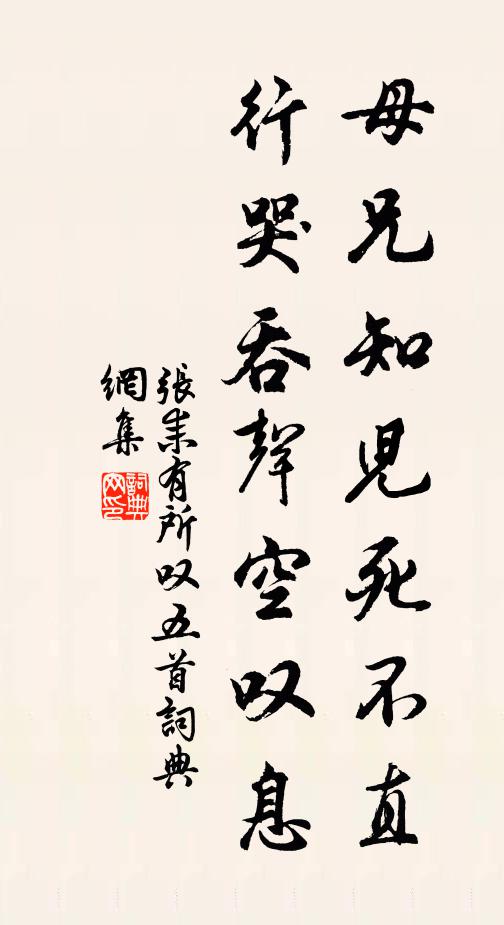 母兄知児死不直
行哭吞聲空叹息
張耒有所叹五首詞典
網集
詞典
网印